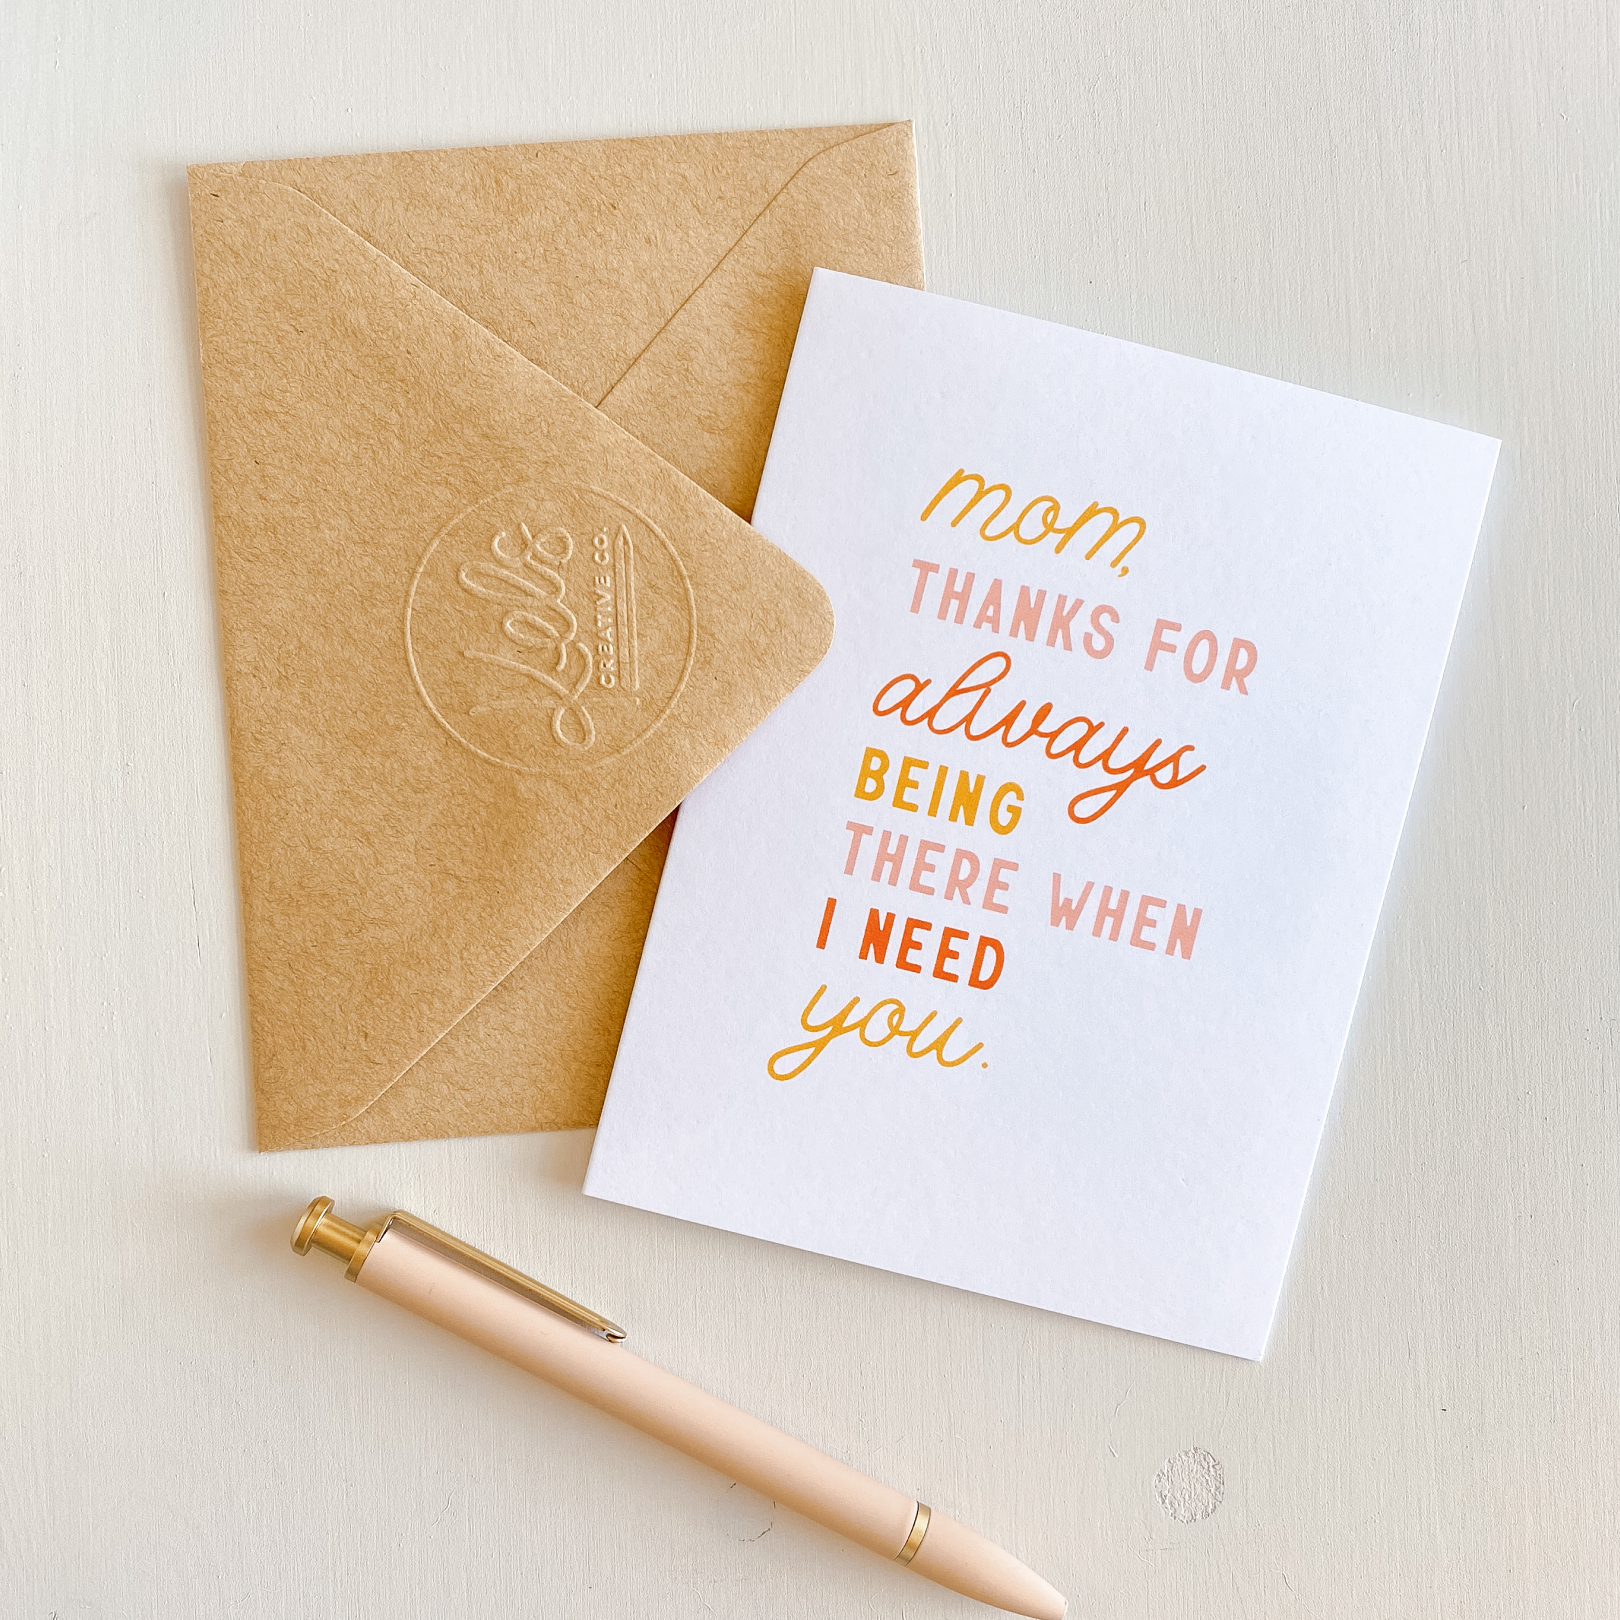 mom,
THANKS FOR
always
BEING
THERE WHEN
I NEED
you.
CREATIVE CO.